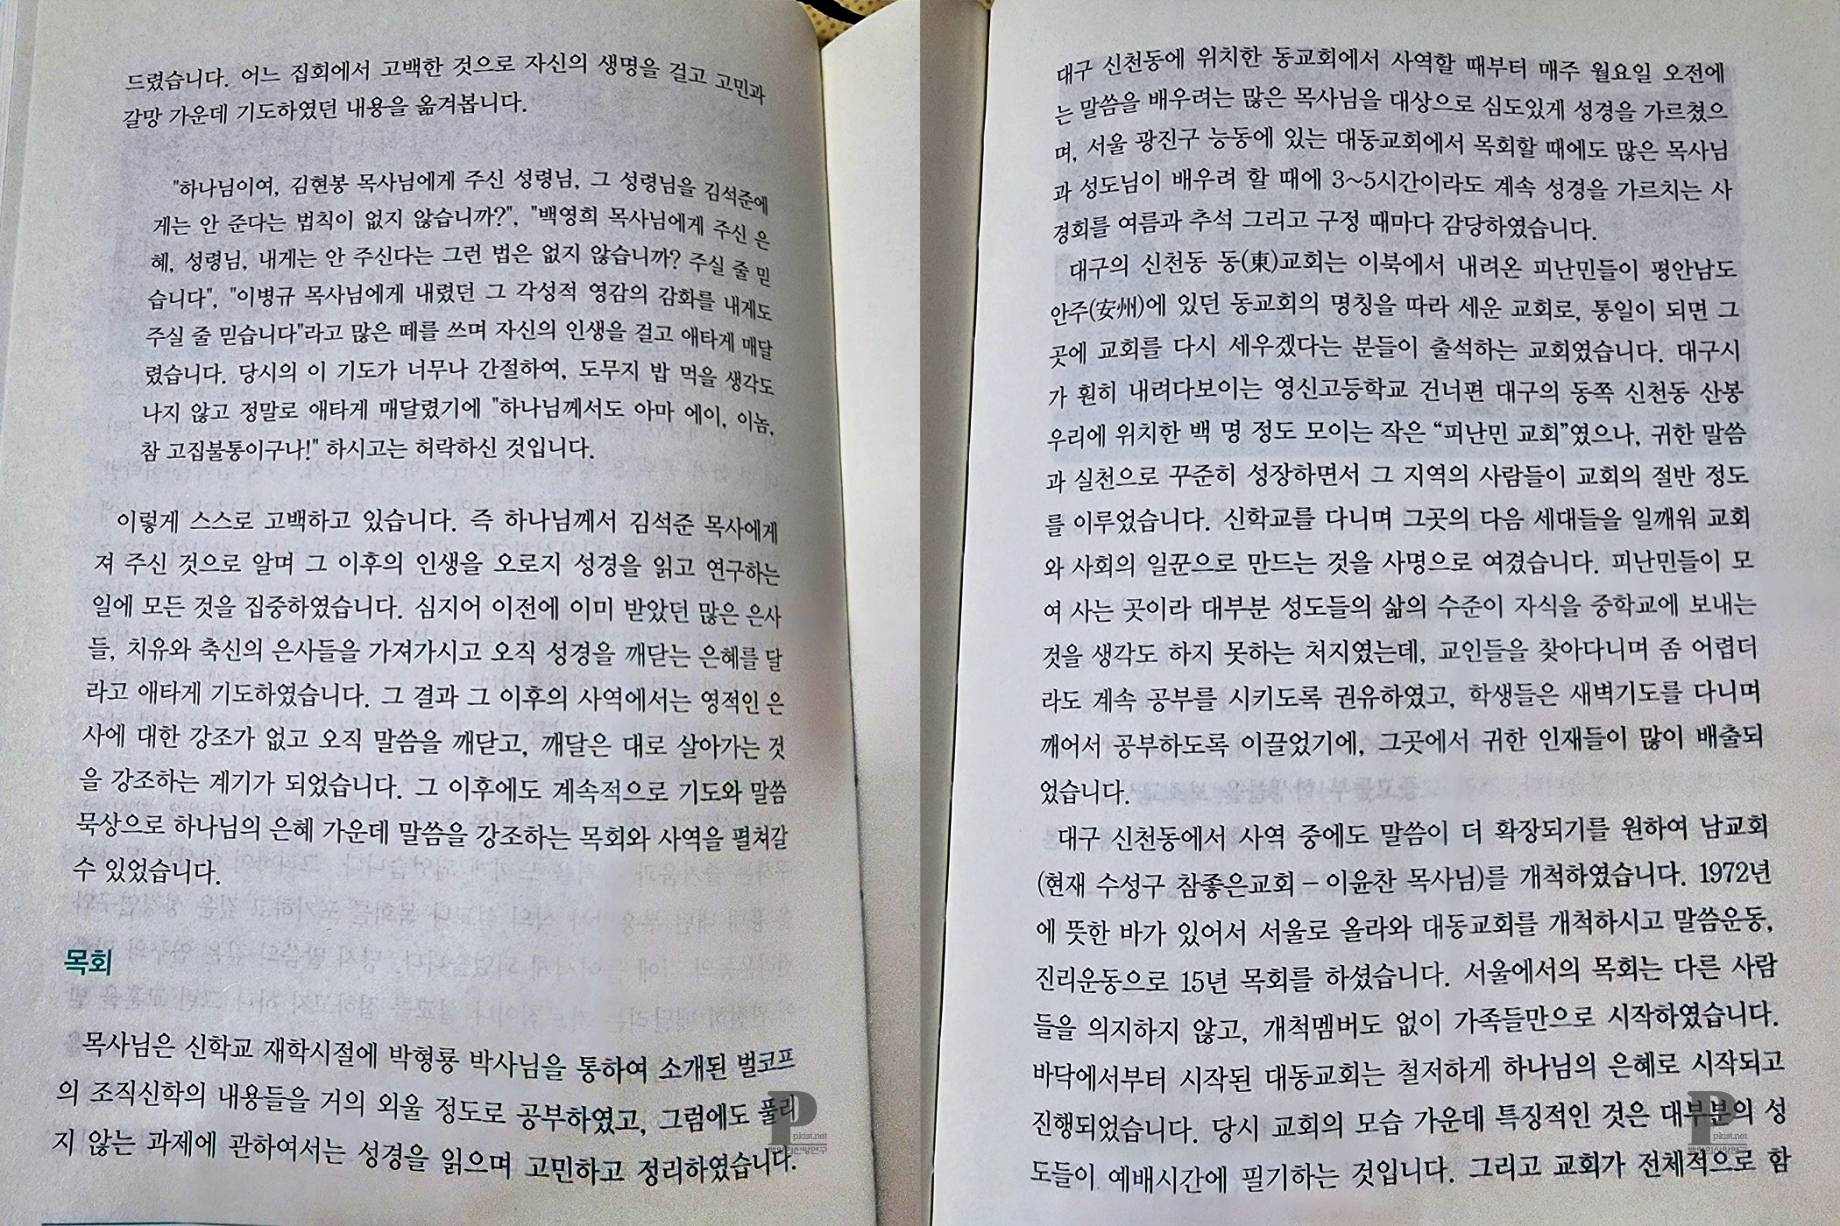 드렸습니다. 어느 집회에서 고백한 것으로 자신의 생명을 걸고 고민과
갈망 가운데 기도하였던 내용을 옮겨봅니다.
"하나님이여, 김현봉 목사님에게 주신 성령님, 그 성령님을 김석준에
게는 안 준다는 법칙이 없지 않습니까?", "백영희 목사님에게 주신 은
혜, 성령님, 내게는 안 주신다는 그런 법은 없지 않습니까? 주실 줄 믿
습니다", "이병규 목사님에게 내렸던 그 각성적 영감의 감화를 내게도
주실 줄 믿습니다"라고 많은 떼를 쓰며 자신의 인생을 걸고 애타게 매달
렸습니다. 당시의 이 기도가 너무나 간절하여, 도무지 밥 먹을 생각도
나지 않고 정말로 애타게 매달렸기에 "하나님께서도 아마 에이, 이놈,
참 고집불통이구나!" 하시고는 허락하신 것입니다.
이렇게 스스로 고백하고 있습니다. 즉 하나님께서 김석준 목사에게
져 주신 것으로 알며 그 이후의 인생을 오로지 성경을 읽고 연구하는
일에 모든 것을 집중하였습니다. 심지어 이전에 이미 받았던 많은 은사
들, 치유와 축신의 은사들을 가져가시고 오직 성경을 깨닫는 은혜를 달
라고 애타게 기도하였습니다. 그 결과 그 이후의 사역에서는 영적인 은
사에 대한 강조가 없고 오직 말씀을 깨닫고, 깨달은 대로 살아가는 것
을 강조하는 계기가 되었습니다. 그 이후에도 계속적으로 기도와 말씀
묵상으로 하나님의 은혜 가운데 말씀을 강조하는 목회와 사역을 펼쳐갈
수 있었습니다.
목회
목사님은 신학교 재학시절에 박형룡 박사님을 통하여 소개된 벌코프
의 조직신학의 내용들을 거의 외울 정도로 공부하였고, 그럼에도 풀리
지 않는 과제에 관하여서는 성경을 읽으며 고민하고 정리하였습니다.
대구 신천동에 위치한 동교회에서 사역할 때부터 매주 월요일 오전에
는 말씀을 배우려는 많은 목사님을 대상으로 심도있게 성경을 가르쳤으
며, 서울 광진구 능동에 있는 대동교회에서 목회할 때에도 많은 목사님
과 성도님이 배우려 할 때에 3~5시간이라도 계속 성경을 가르치는 사
경회를 여름과 추석 그리고 구정 때마다 감당하였습니다.
대구의 신천동 동(東)교회는 이북에서 내려온 피난민들이 평안남도
안주(安州)에 있던 동교회의 명칭을 따라 세운 교회로, 통일이 되면 그
곳에 교회를 다시 세우겠다는 분들이 출석하는 교회였습니다. 대구시
가 훤히 내려다보이는 영신고등학교 건너편 대구의 동쪽 신천동 산봉
우리에 위치한 백 명 정도 모이는 작은 “피난민 교회”였으나, 귀한 말씀
과 실천으로 꾸준히 성장하면서 그 지역의 사람들이 교회의 절반 정도
를 이루었습니다. 신학교를 다니며 그곳의 다음 세대들을 일깨워 교회
와 사회의 일꾼으로 만드는 것을 사명으로 여겼습니다. 피난민들이 모
여 사는 곳이라 대부분 성도들의 삶의 수준이 자식을 중학교에 보내는
것을 생각도 하지 못하는 처지였는데, 교인들을 찾아다니며 좀 어렵더
라도 계속 공부를 시키도록 권유하였고, 학생들은 새벽기도를 다니며
깨어서 공부하도록 이끌었기에, 그곳에서 귀한 인재들이 많이 배출되
었습니다.
대구 신천동에서 사역 중에도 말씀이 더 확장되기를 원하여 남교회
(현재 수성구 참좋은교회 – 이윤찬 목사님)를 개척하였습니다. 1972년
에 뜻한 바가 있어서 서울로 올라와 대동교회를 개척하시고 말씀운동,
진리운동으로 15년 목회를 하셨습니다. 서울에서의 목회는 다른 사람
들을 의지하지 않고, 개척멤버도 없이 가족들만으로 시작하였습니다.
바닥에서부터 시작된 대동교회는 철저하게 하나님의 은혜로 시작되고
진행되었습니다. 당시 교회의 모습 가운데 특징적인 것은 대부분의 성
도들이 예배시간에 필기하는 것입니다. 그리고 교회가 전체적으로 함